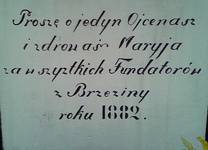 Proszę o jedyn Ojcenasz
i zdrowaś Maryja
za wszystkich Fundatorów
z Brzeziny
roku 1882.